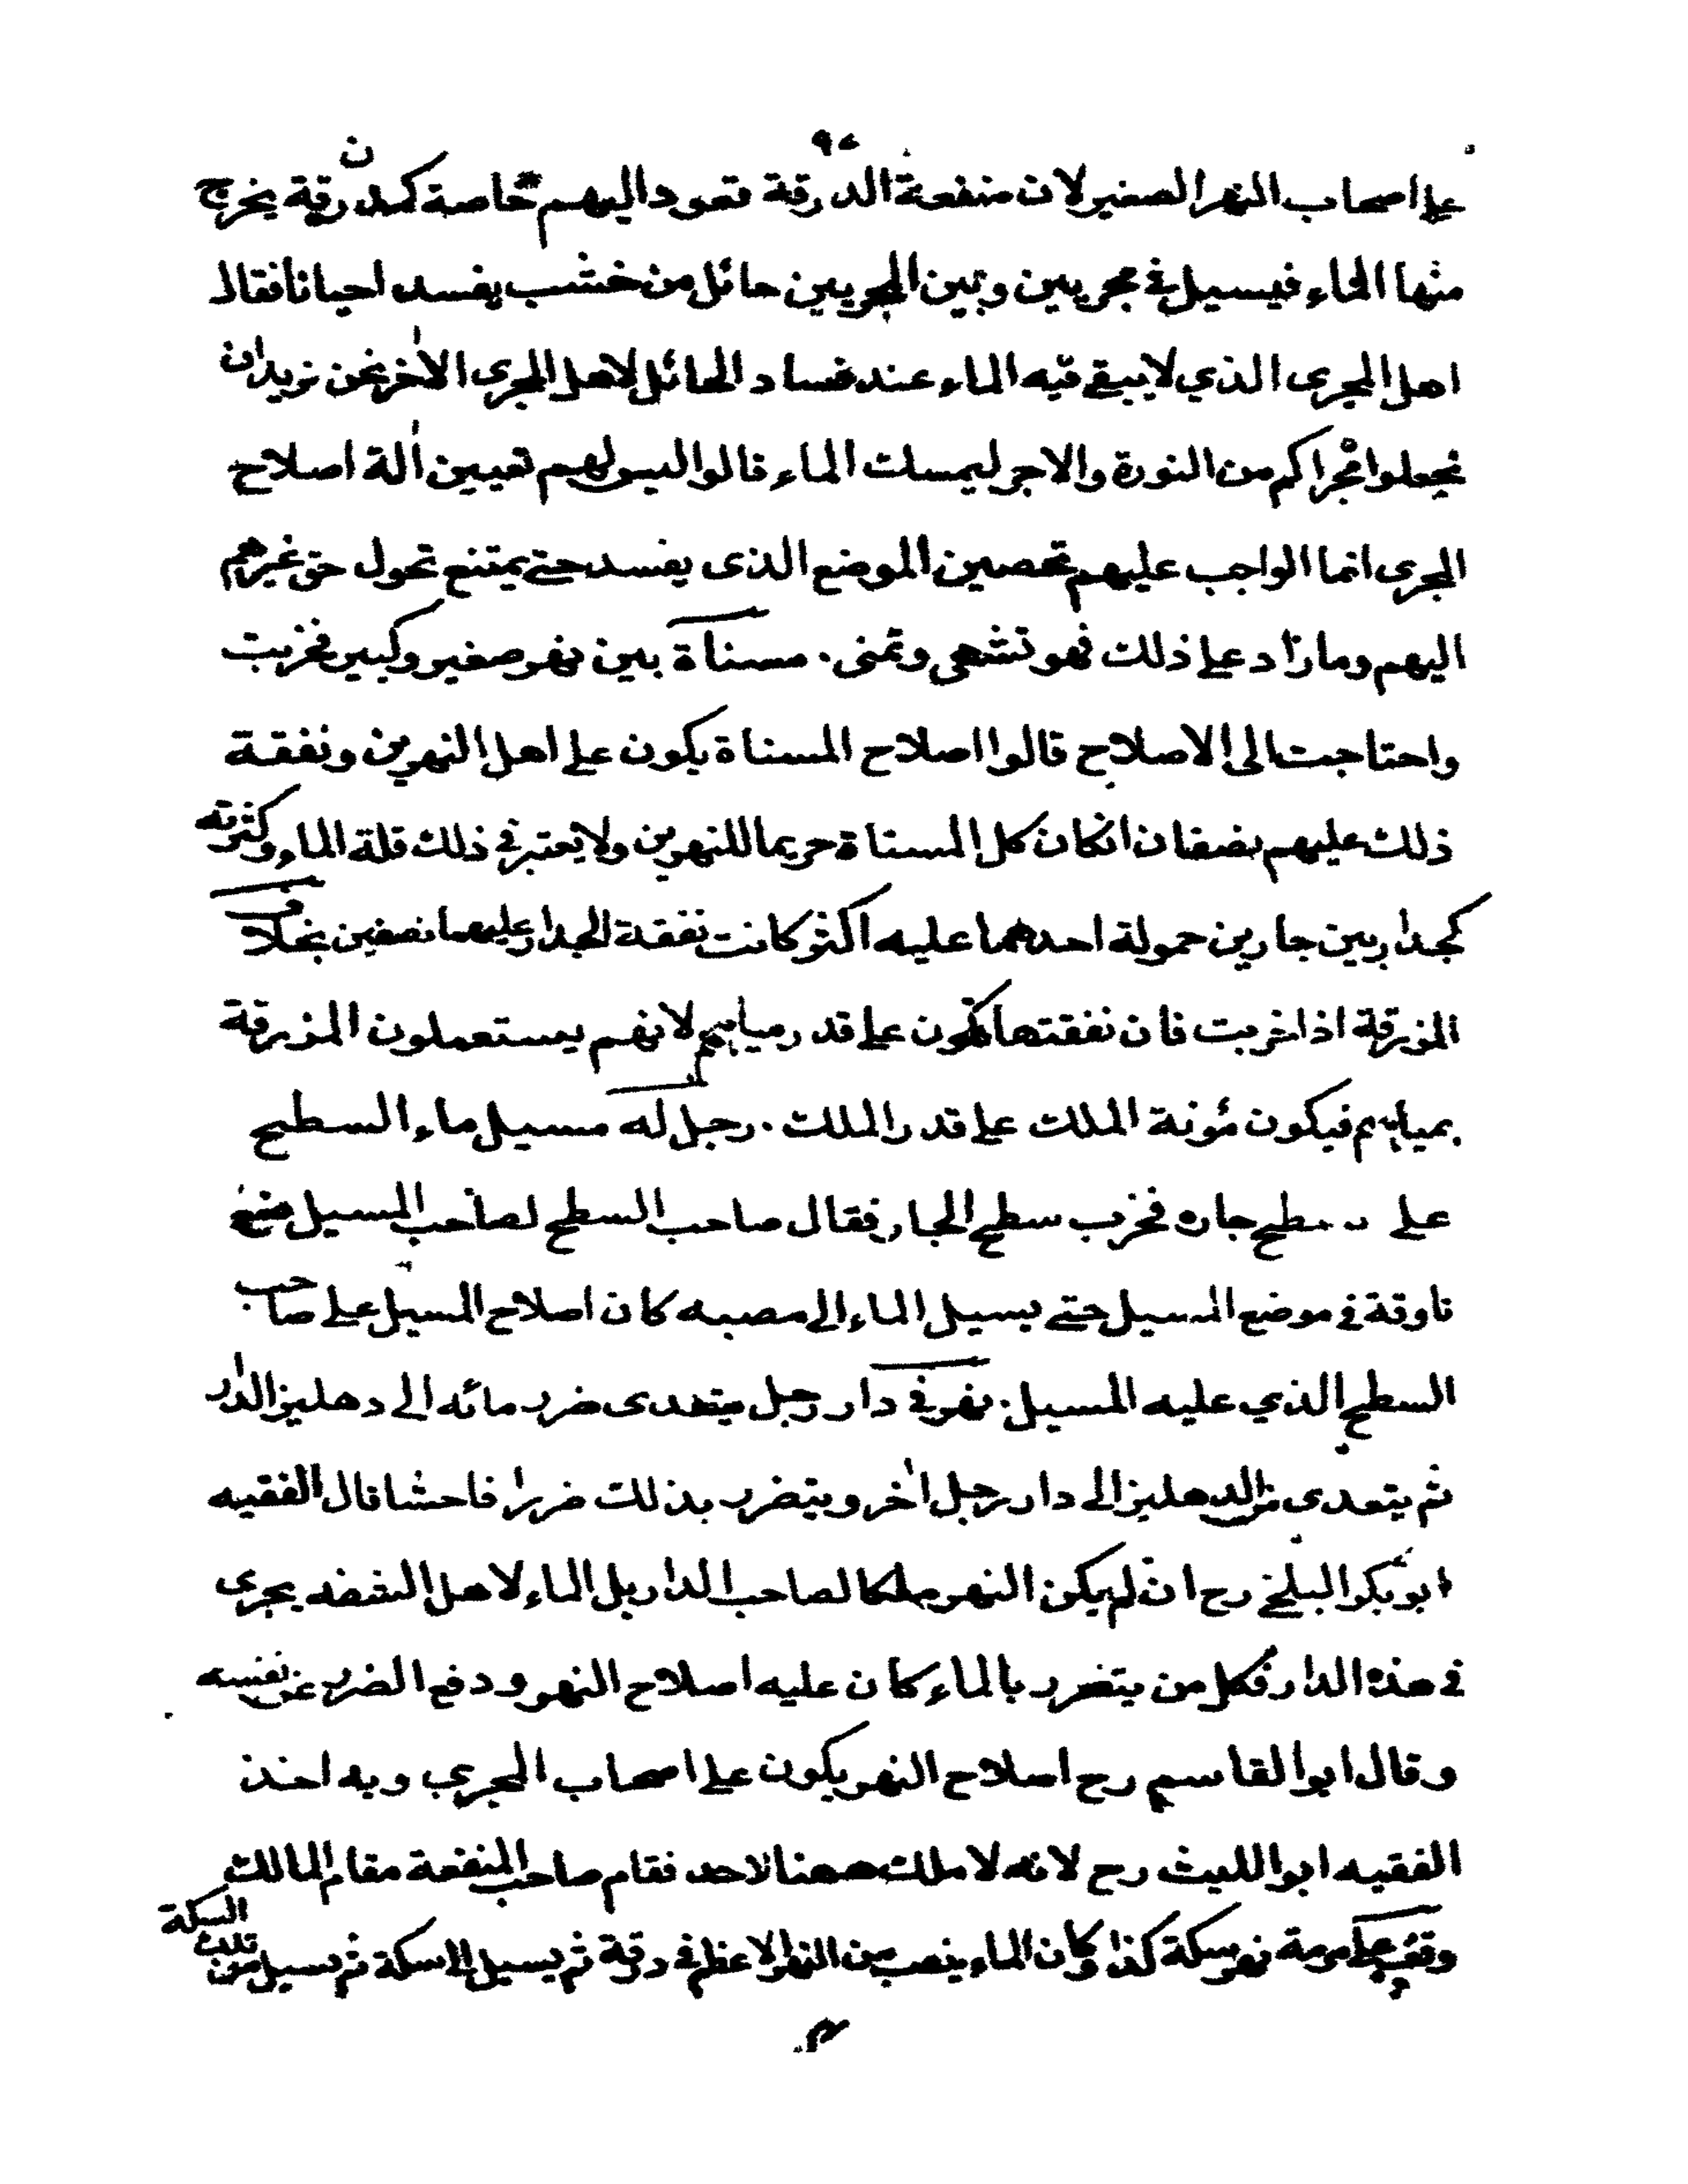 على اصحاب النهر الصغير لان منفعة الدرقة تعود اليهم خاصة كمدرقة يخرج
منها الماء فيسيل في مجريين وبين المجريين حائل من خشب يفسد احيانا فقال
اهل المجرى الذي لا يبقى فيه الماء عند فساد الحائل لاهل المجرى الاخر نحن نريد ان
تجعلوا مجراكم من النورة والاجر ليمسك الماء قالوا ليس لهم تعيين الة اصلاح
المجرى انما الواجب عليهم تحصين الموضع الذى يفسد حتى يمتنع تحول حق غيرهم
اليهم وما زاد على ذلك فهو تشهى وتمنى. مسناة بين نهر صغير وكبير فخربت
واحتاجت الى الاصلاح قالوا اصلاح المسناة يكون على اهل النهرين ونفقة
ذلك عليهم نصفان انكان كل المسناة حريما للنهرين ولا يعتبر في ذلك قلة الماء وكثرته
كجدار بين جارين حمولة احدهما عليه اكثر كانت نفقة الجدار عليهما نصفين بخلاف
المزرقة اذا خربت فان نفقتها تكون على قدر مياههم لانهم يستعملون المزرقة
بمياههم فيكون مؤنة الملك على قدر الملك. رجل له مسيل ماء السطح
على سطح جاره فخرب سطح الجار فقال صاحب السطح لصاحب المسيل ضع
ناوقة في موضع المسيل حتى يسيل الماء الى مصبه كان اصلاح المسيل على صاحب
السطح الذي عليه المسيل. نهر في دار رجل يتعدى ضرر مائه الى دهليز الدار
ثم يتعدى من الدهليز الى دار رجل اخر ويتضرر بذلك ضررا فاحشا قال الفقيه
ابو بكر البلخي رح ان لم يكن النهر ملكا لصاحب الدار بل الماء لاهل الشفه يجرى
في هذه الدار فكل من يتضرر بالماء كان عليه اصلاح النهر ودفع الضرر عن نفسه
وقال ابو القاسم رح اصلاح النهر يكون على اصحاب المجرى وبه اخذ
الفقيه ابو الليث رح لانه لا ملك ههنا لاحد فقام صاحب المنفعة مقام المالك
وقف على مرمة نهر سكة كذا وكان الماء ينصب من النهر الاعظم في درقة ثم يسيل الى السكة ثم يسيل من تلك السكة